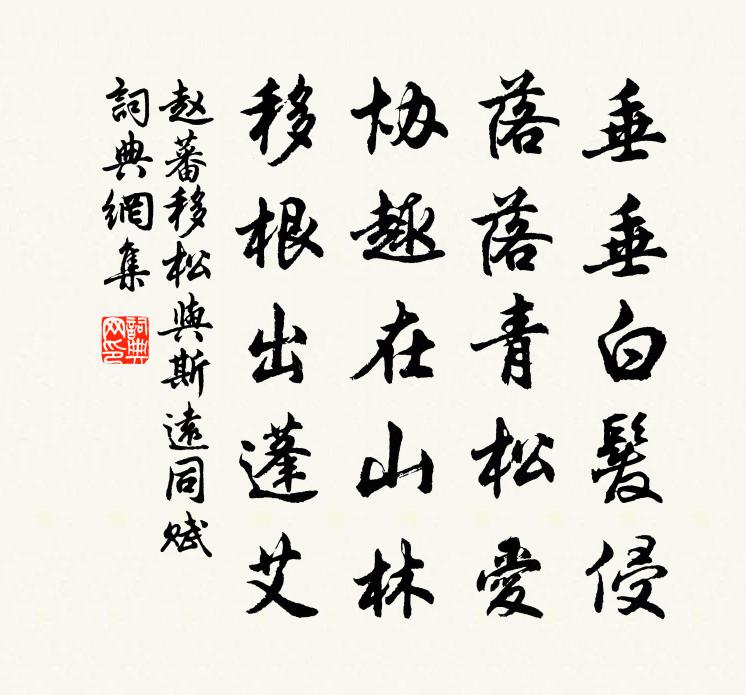 垂垂白髮侵
落落青松愛
協趣在山林
移根出蓬艾
赵蕃移松與斯遠同賦
詞典網集
詞典网印